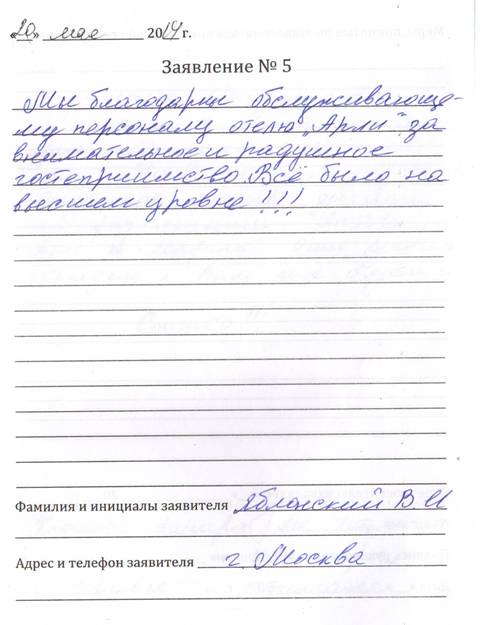 «20» мае 2014 г.
Заявление № 5
Мы благодарны обслуживающе-
му персоналу отелю „Арли" за
внимательное и радушное
гостеприимство. Всё было на
высшем уровне!!!
Фамилия и инициалы заявителя Яблонский В. И
Адрес и телефон заявителя г. Москва